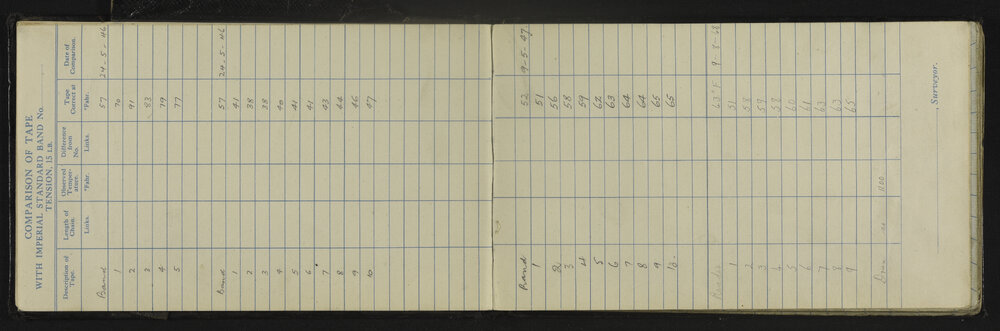 COMPARISON OF TAPE
WITH IMPERIAL STANDARD BAND No.
TENSION, 15 LB.
Description of Tape. Length of Chain. Observed Temperature. Difference from No. Tape Correct at Date of Comparison.
Links. °Fahr. Links. °Fahr.
Band 57 24-5-46
1 70
2 91
3 83
4 79
5 77
Band 57 24-5-46
1 41
2 38
3 38
4 40
5 41
6 41
7 43
8 44
9 46
10 47
Band 52 9-5-47
1 51
2 56
3 58
4 59
5 62
6 63
7 64
8 64
9 65
10 65
63°F 9-8-48
1 51
2 58
3 59
4 58
5 60
6 61
7 63
8 63
9 65
1100
, Surveyor.